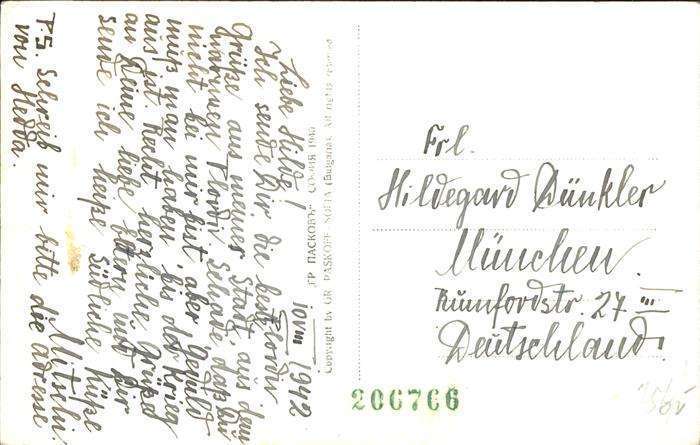 10 VIII 942
Liebe Hilde!
Ich sende Dir die besten
Grüße aus meiner Stadt, aus dem
warmen Plovdiv. Schade, daß Du
nicht bei mir bist, aber Geduld
muß man haben bis der Krieg
aus ist. Recht herzliche Grüße
an Deine liebe Eltern und Dir
sende ich heiße südliche Küße
Mitschi
P.S. Schreib mir bitte die Adresse
von Herta.
ГР. ПАСКОВЪ СОФИЯ 1940
Copyright by GR. PASKOFF SOFIA (Bulgaria). All rights reserved
Frl.
Hildegard Dünkler
München
Rumfordstr. 27 III
Deutschland.
206766